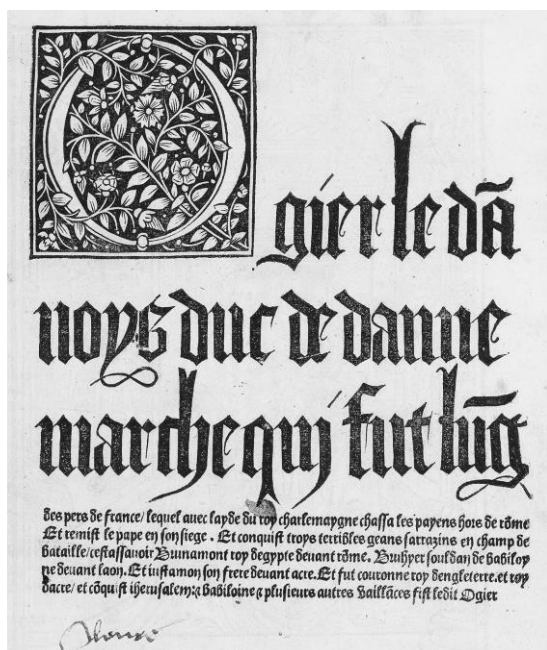 Ogier le dā
noys duc de danne
marche qui fut lūg
des pers de france/ lequel auec layde du roy charlemaygne chassa les payens hors de rōme
Et remist le pape en son siege . Et conquist troys terribles geans sarrazins en champ de
bataille/cestassauoir Brunamont roy degypte deuant rōme. Bruhyer souldan de babiloy
ne deuant laon. Et iustamon son frere deuant acre. Et fut couronne roy dengleterre.et roy
dacre/ et cōquist iherusalem:⁊ babiloine ⁊ plusieurs autres vaillāces fist ledit Ogier